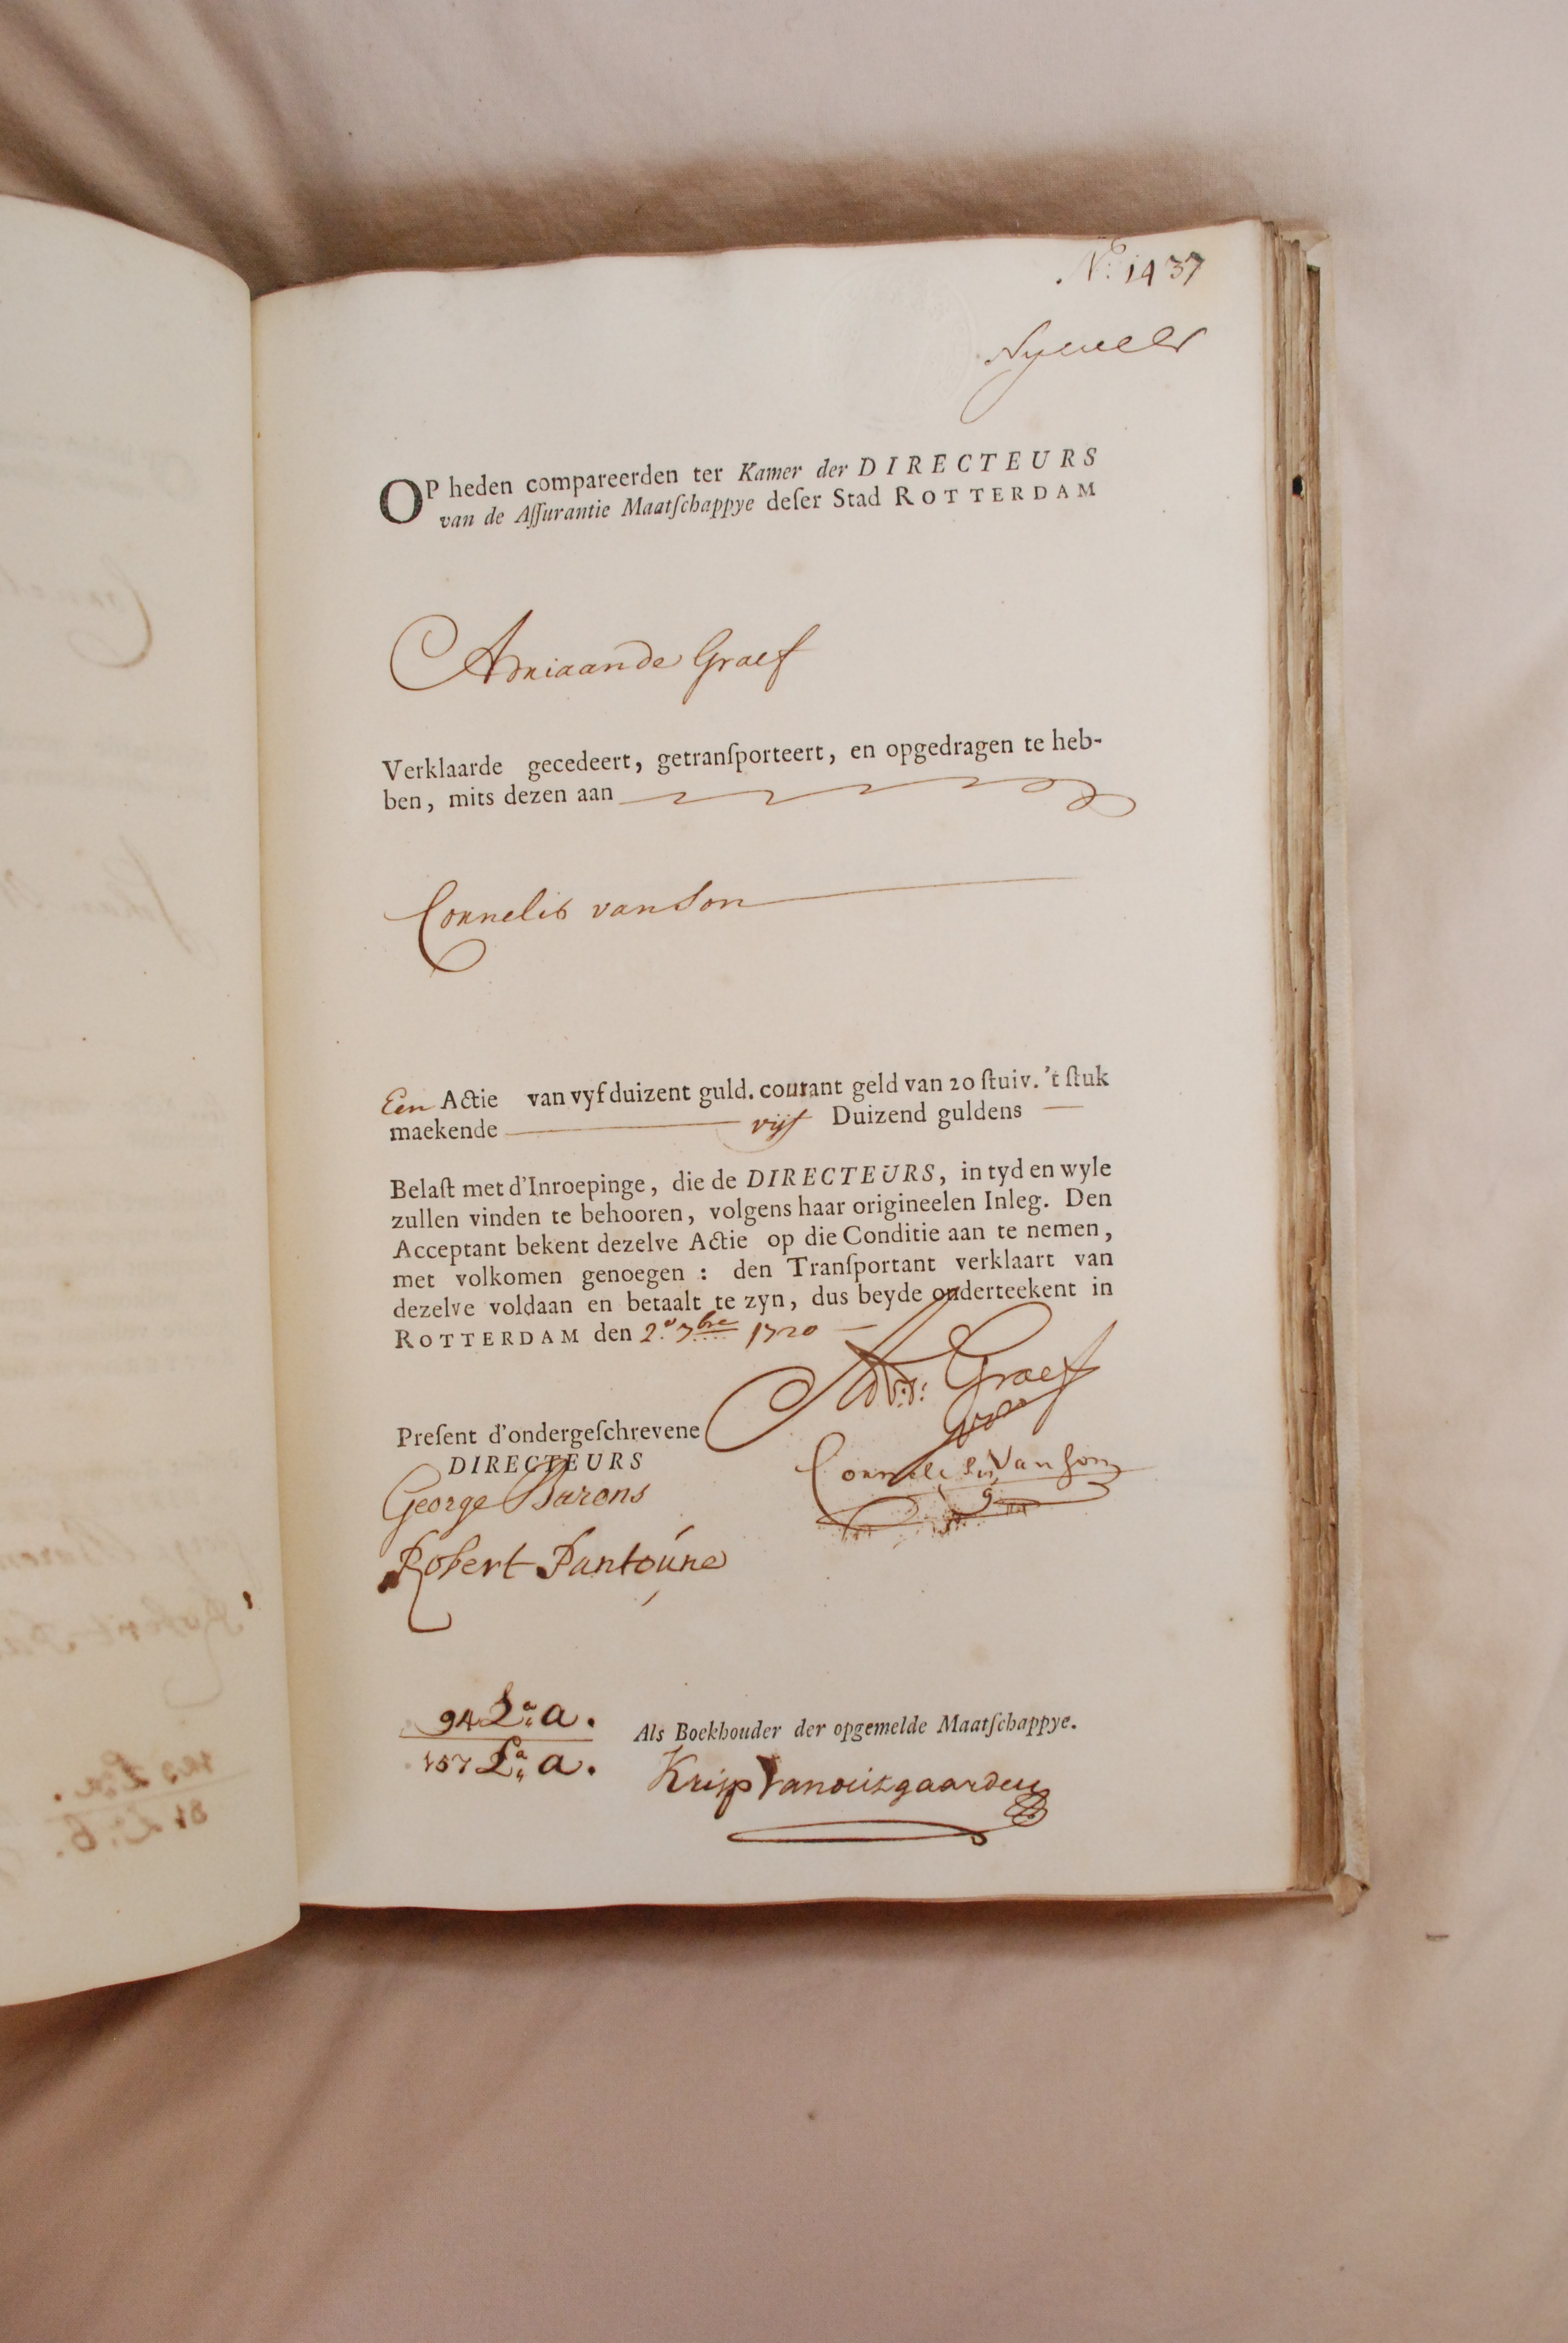 N.o 1437
Nymeelr
OP heden compareerden ter Kamer der DIRECTEURS
van de Aſſurantie Maatſchappye deſer Stad ROTTERDAM
Adriaan de Graef
Verklaarde gecedeert, getranſporteert, en opgedragen te heb-
ben, mits dezen aan
Cornelis van Son
Een Actie van vyf duizent guld. courant geld van 20 ſtuiv. 't ſtuk
maekende vijf Duizend guldens
Belaſt met d'Inroepinge, die de DIRECTEURS, in tyd en wyle
zullen vinden te behooren, volgens haar origineelen Inleg. Den
Acceptant bekent dezelve Actie op die Conditie aan te nemen,
met volkomen genoegen : den Tranſportant verklaart van
dezelve voldaan en betaalt te zyn, dus beyde onderteekent in
ROTTERDAM den 2.e 7bre 1720
Ad: d: Graef
Preſent d'ondergeſchrevene
DIRECTEURS
Cornelis Van Son
George Barons
Robert Pantoúne
94 La a.
157 La a.
Als Boekhouder der opgemelde Maatſchappye.
Krijn Vanoutgaarden